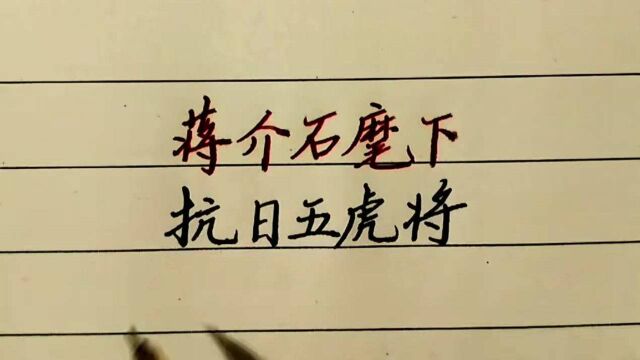 蒋介石麾下
抗日五虎将